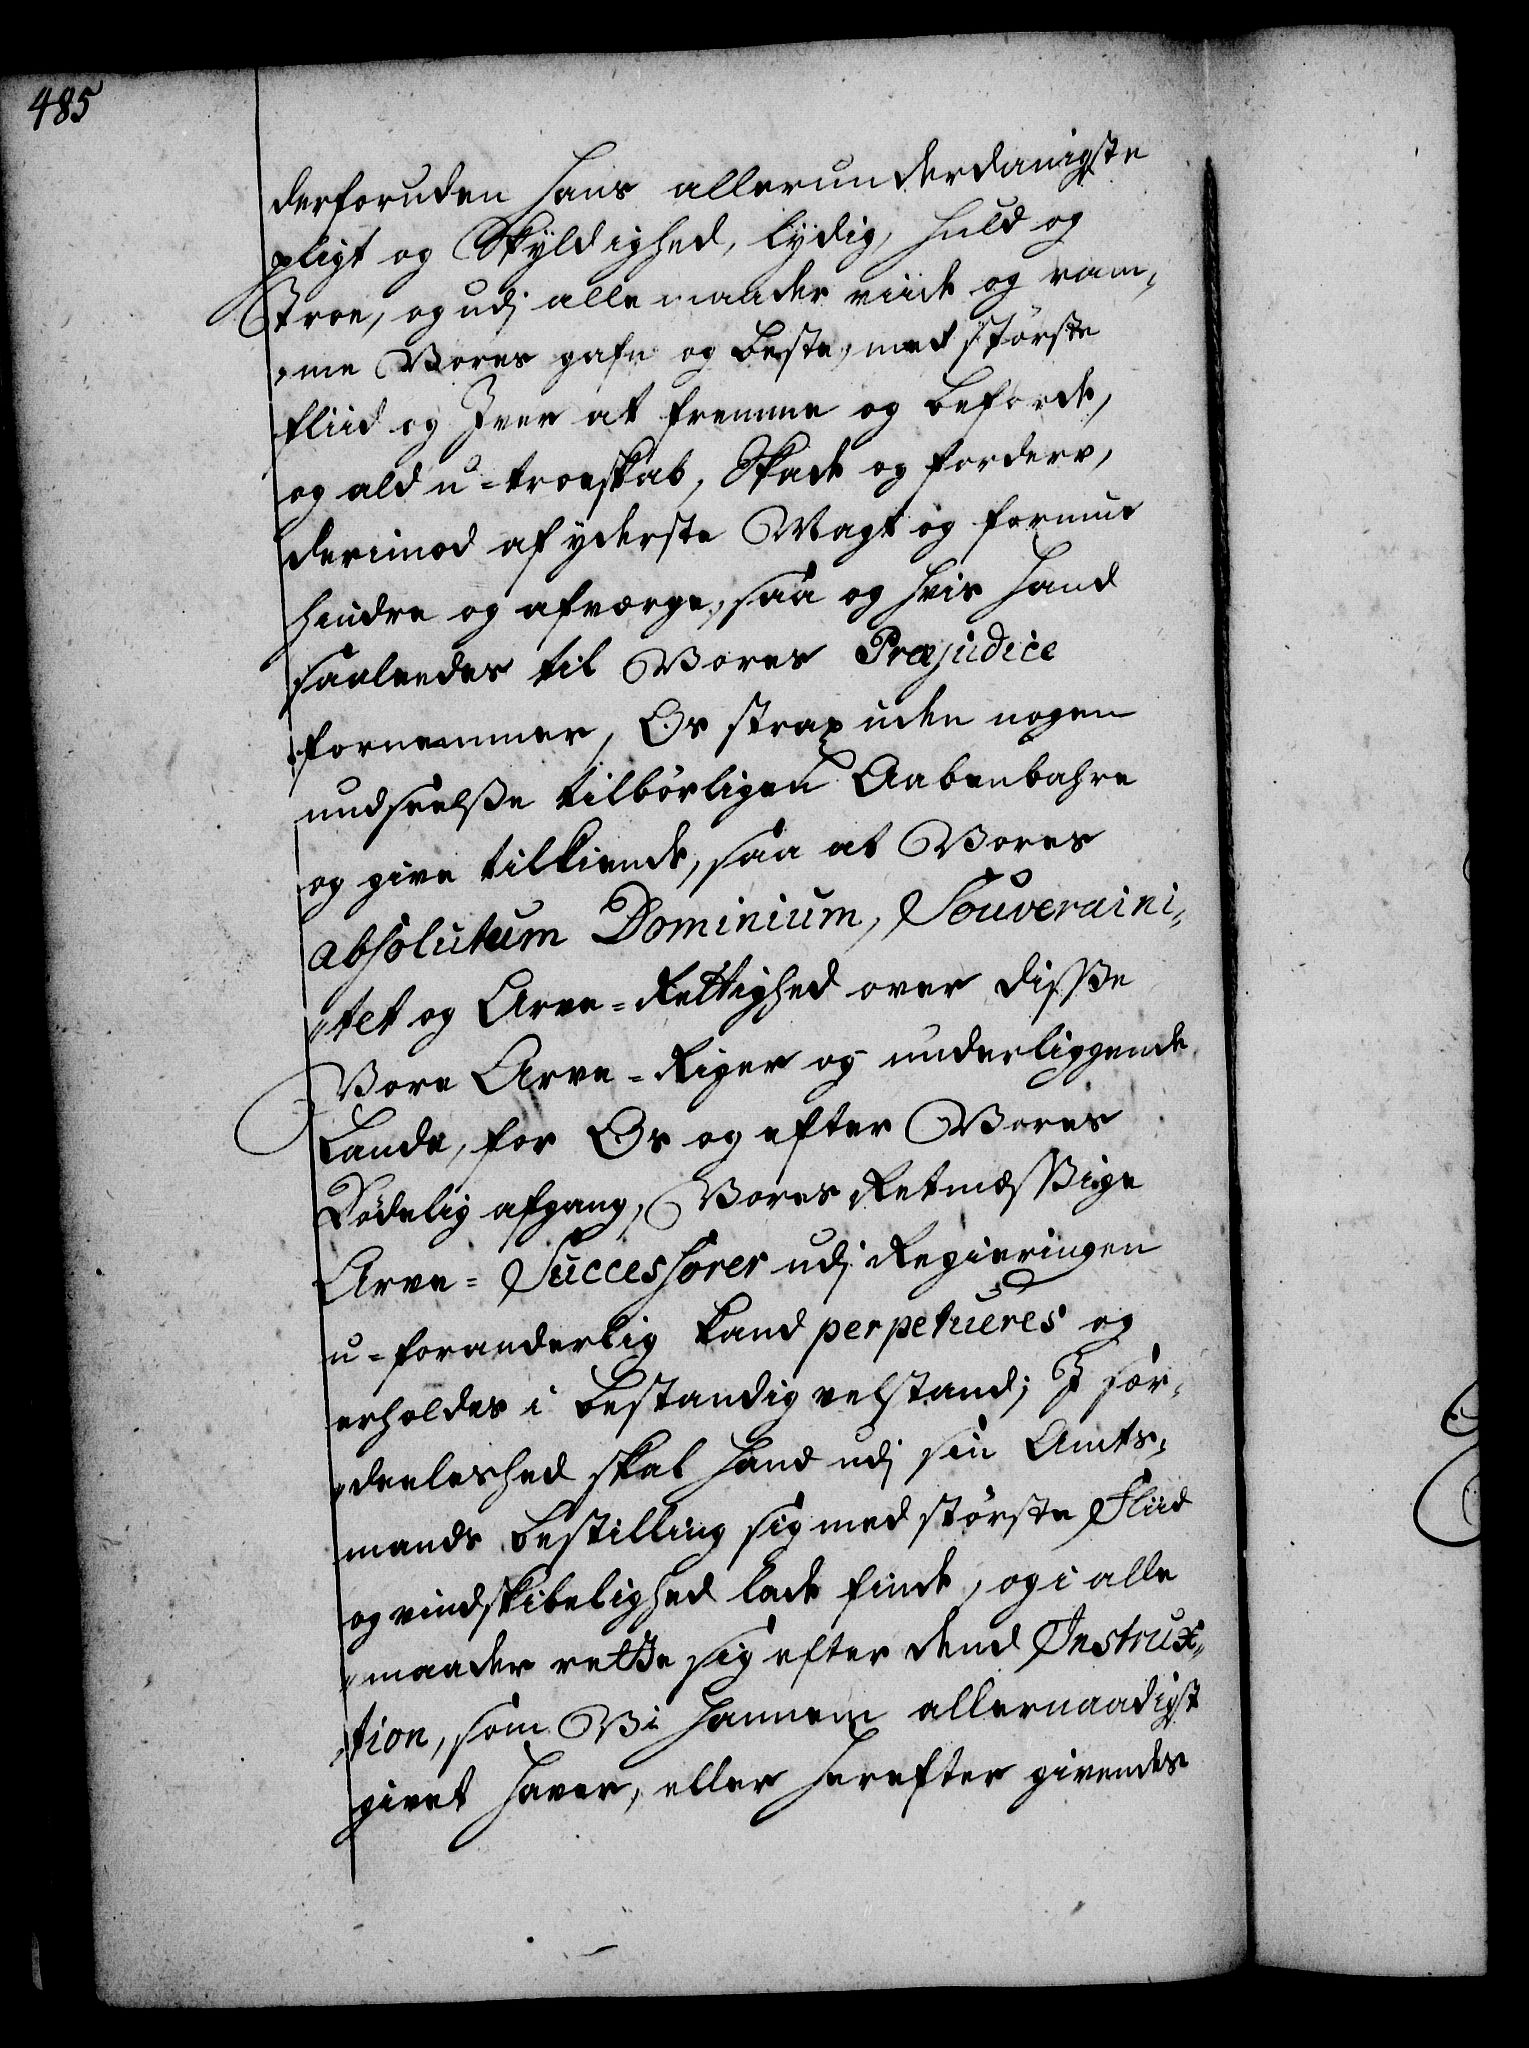 485
derforuden hans allerunderdanigste
pligt og Skyldighed, lydig, huld og
Troe, og udj alle maader viide og ram,,
,,me Vores gafn og beste, med største
fliid og Iver at fremme og befordre,
og ald u-troeskab, Skade og forderv,
derimod af yderste Magt og formue
hindre og afværge, saa og hvis hand
saaleedes til Vores Præjudice
fornemmer, Os strax uden nogen
undseelße tilbørligen Aabenbahre
og give tilkiende, saa at Vores
absolutum Dominium, Souveraini,,
,,tet og Arve-Rettighed over disße
Vore Arve-Riger og underliggende
Lande, for Os og efter Vores
Dødelig afgang, Vores Retmæsßige
Arve-Successorer udj Regieringen
u-foranderlig kand perpetueres og
erholdes i bestandig velstand; I sær,,
,,deeleshed skal hand udj sin Amts,,
mands bestilling sig med største Fliid
og vindskibelighed lade finde, og i alle
,,maader rette sig efter dend Instrux,,
,,tion, som Vi hannem allernaadigst
givet haver, eller herefter givendes